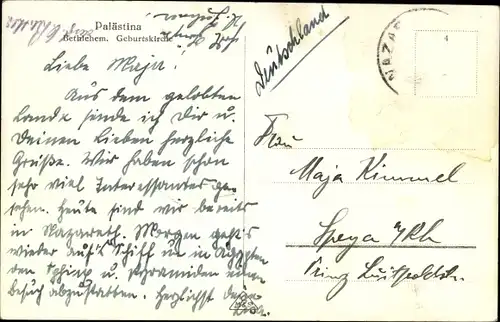 Palästina
Bethlehem. Geburtskirche
Liebe Maja!
Aus dem gelobten
Lande sende ich Dir u.
Deinen Lieben herzliche
Grüße. Wir haben schon
sehr viel Interessantes ge-
sehen. Heute sind wir bereits
in Nazareth. Morgen geht's
wieder auf's Schiff um in Ägypten
den Sphinx u. Pyramiden einen
Besuch abzustatten. Herzlichst
Deutschland
NAZAR
4
Frau
Maja Kimmel
Speyer a/Rh
Prinz Luitpoldstr.